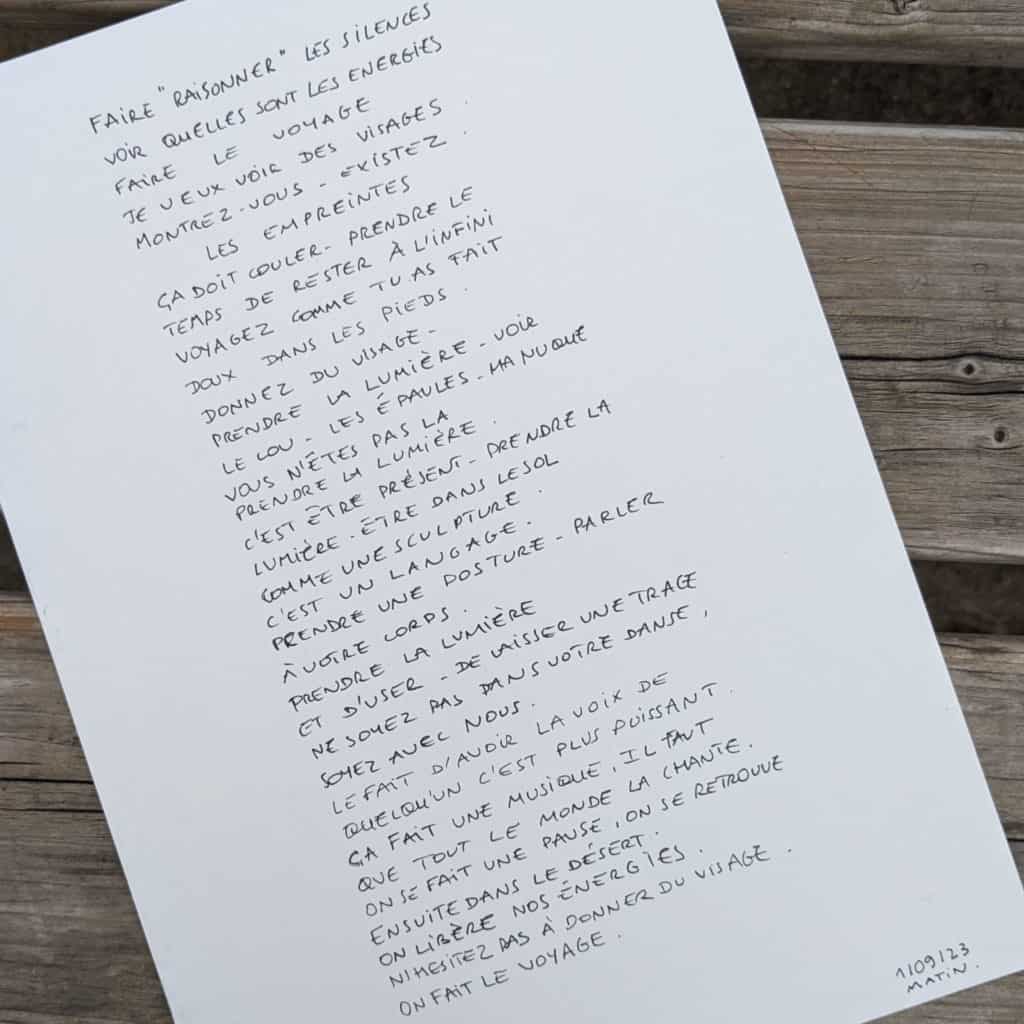 FAIRE "RAISONNER" LES SILENCES
VOIR QUELLES SONT LES ENERGIES
FAIRE LE VOYAGE
JE VEUX VOIR DES VISAGES.
MONTREZ-VOUS - EXISTEZ.
LES EMPREINTES
ÇA DOIT COULER - PRENDRE LE
TEMPS DE RESTER À L'INFINI
VOYAGEZ COMME TU AS FAIT
DOUX DANS LES PIEDS.
DONNEZ DU VISAGE -
PRENDRE LA LUMIÈRE - VOIR
LE COU - LES ÉPAULES - MA NUQUE
VOUS N'ÊTES PAS LA
PRENDRE LA LUMIÈRE.
C'EST ÊTRE PRÉSENT - PRENDRE LA
LUMIÈRE - ÊTRE DANS LE SOL
COMME UNE SCULPTURE.
C'EST UN LANGAGE.
PRENDRE UNE POSTURE - PARLER
À VOTRE CORPS.
PRENDRE LA LUMIÈRE
ET D'USER - DE LAISSER UNE TRACE
NE SOYEZ PAS DANS VOTRE DANSE,
SOYEZ AVEC NOUS.
LE FAIT D'AVOIR LA VOIX DE
QUELQU'UN C'EST PLUS PUISSANT.
ÇA FAIT UNE MUSIQUE, IL FAUT
QUE TOUT LE MONDE LA CHANTE.
ON SE FAIT UNE PAUSE, ON SE RETROUVE
ENSUITE DANS LE DÉSERT.
ON LIBÈRE NOS ÉNERGIES.
N'HESITEZ PAS À DONNER DU VISAGE.
ON FAIT LE VOYAGE.
1/09/23
MATIN.